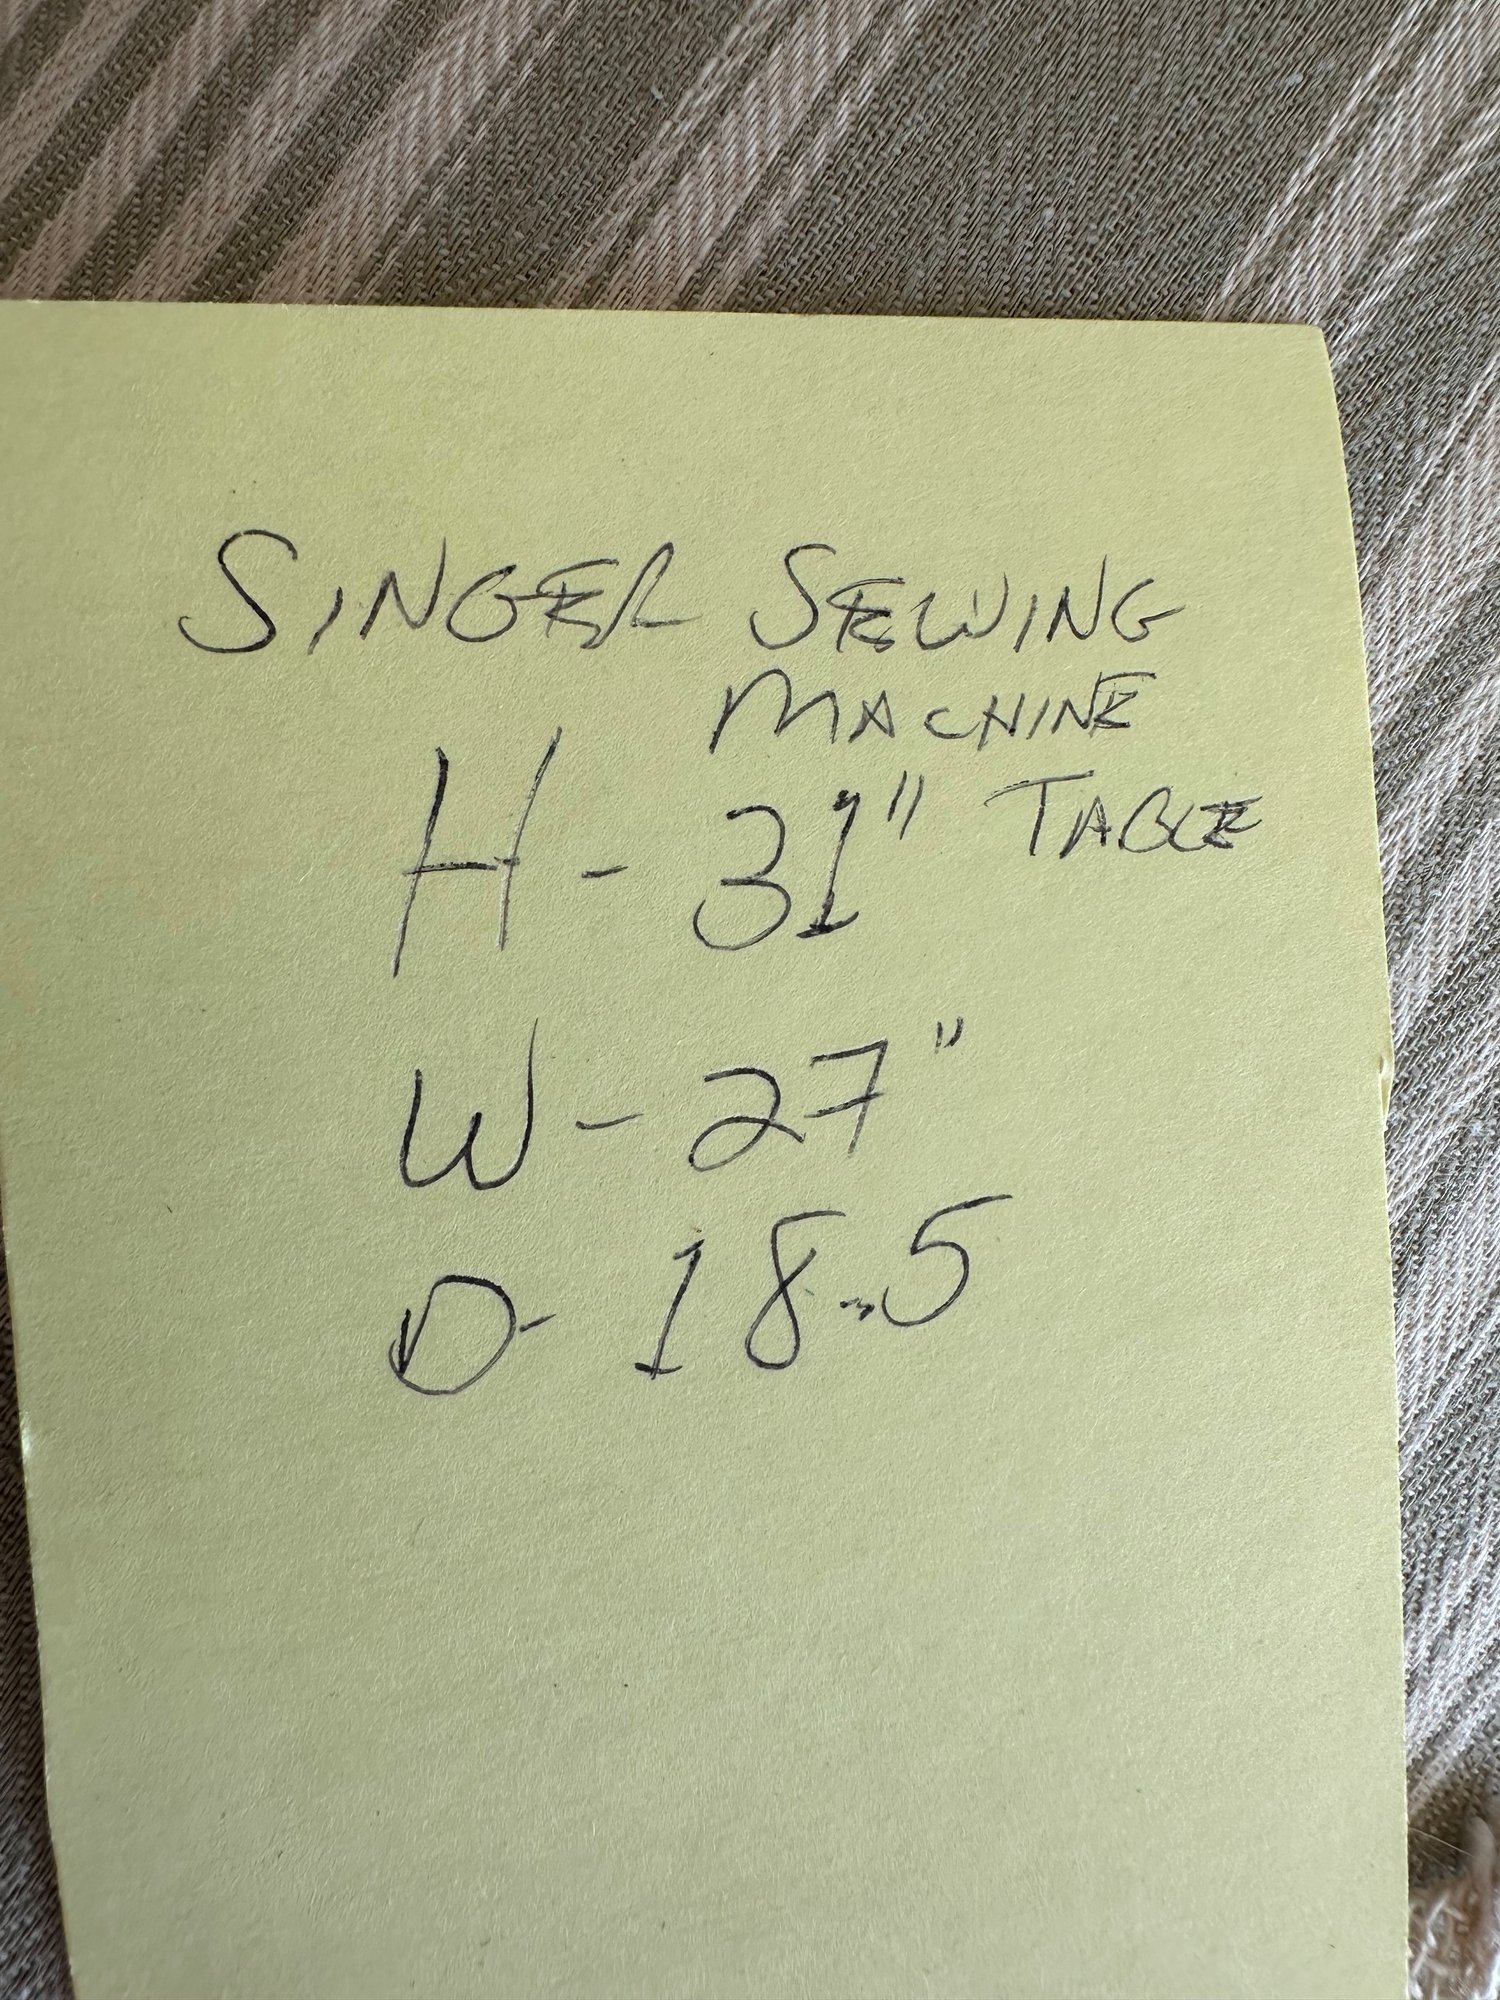 SINGER SEWING
MACHINE
H - 31" TABLE
W - 27"
D - 18.5